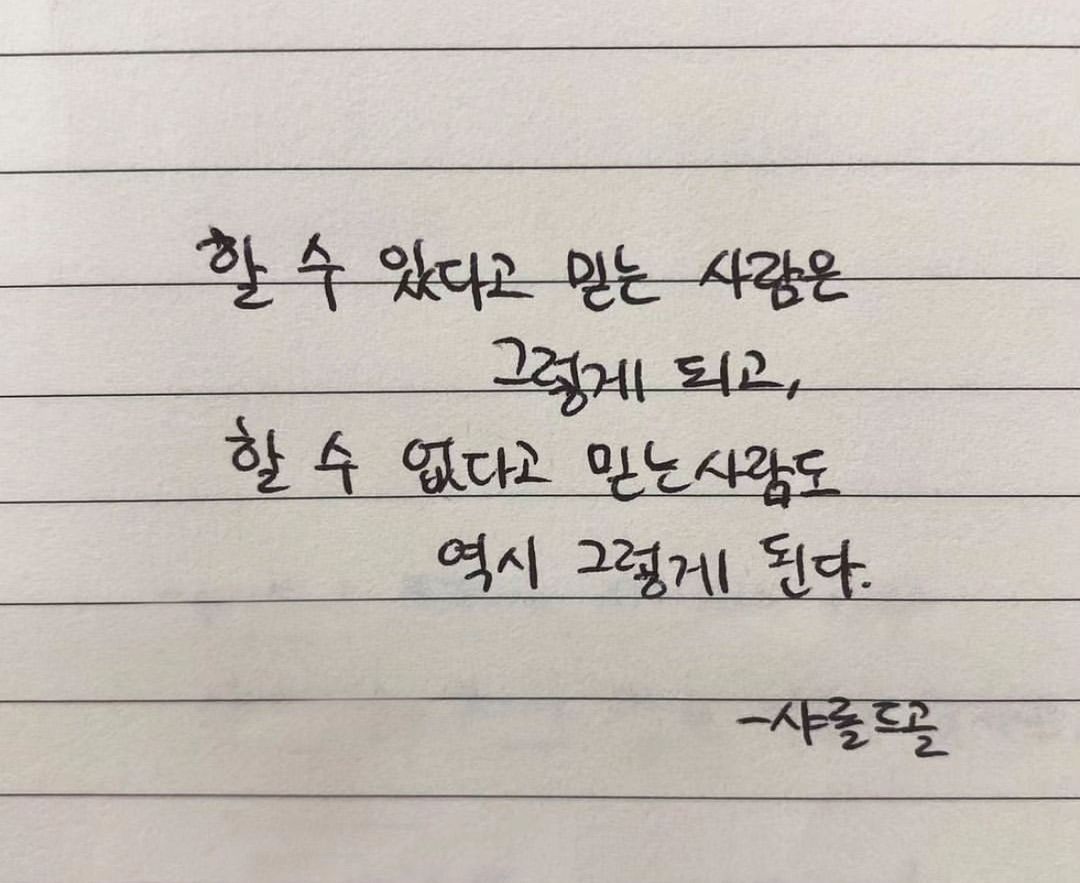 할 수 있다고 믿는 사람은
그렇게 되고,
할 수 없다고 믿는사람도
역시 그렇게 된다.
-샤를드골